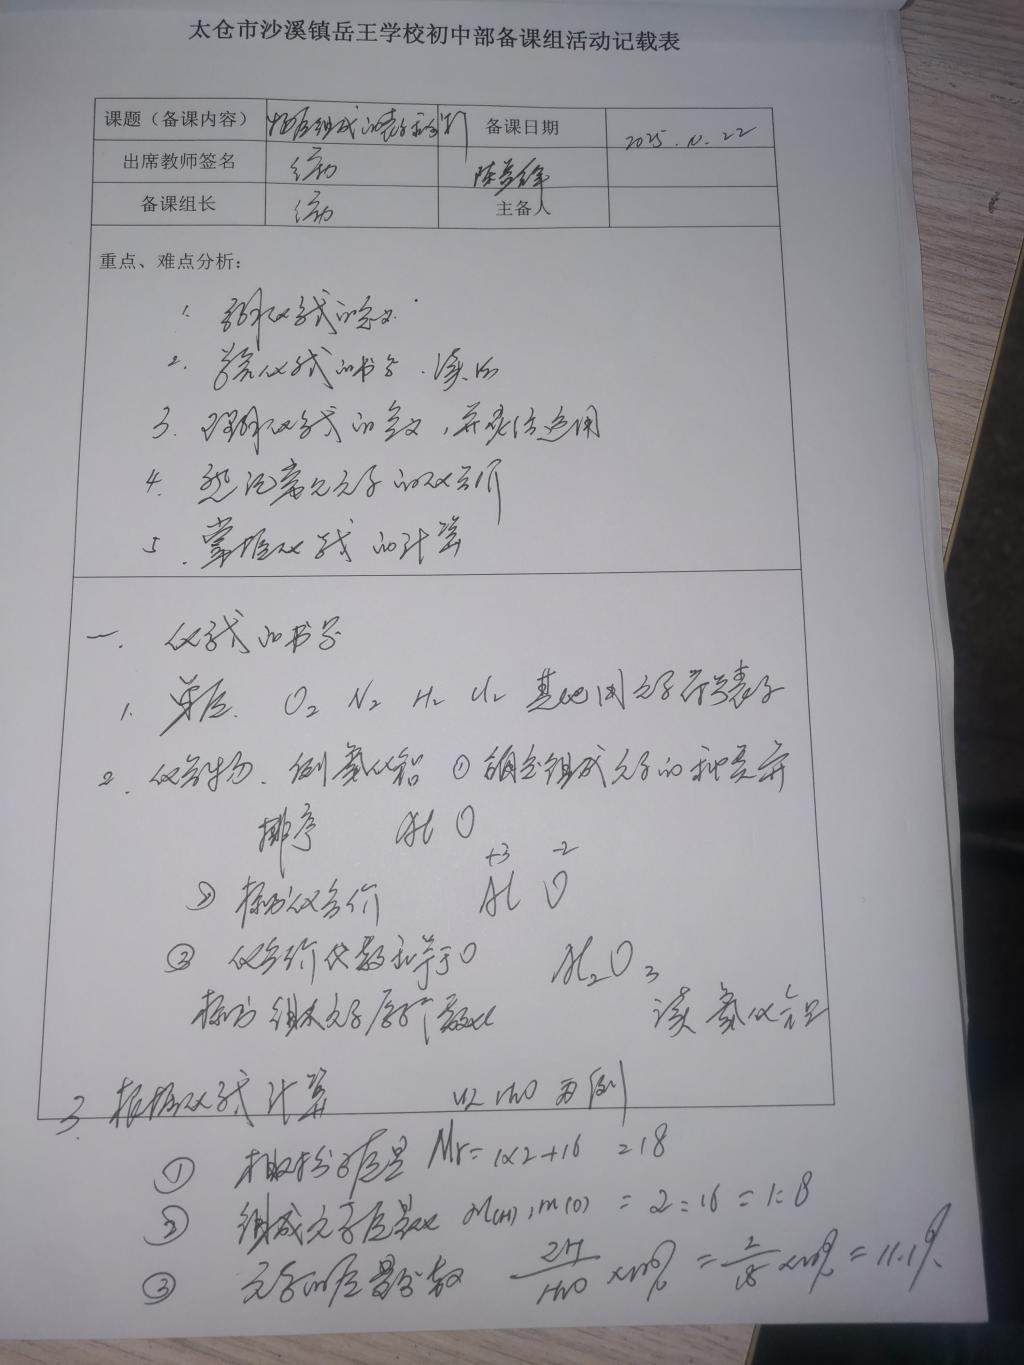 太仓市沙溪镇岳王学校初中部备课组活动记载表
课题（备课内容） 物质组成的表示和 备课日期 2025.11.22
出席教师签名
备课组长 主备人
重点、难点分析：
1. 化学式的含义.
2. 化学式的书写.读法
3. 理解化学式的含义，并灵活运用
4. 熟记常见元素的化合价
5. 掌握化学式的计算
一. 化学式的书写
1. 单质. O₂ N₂ H₂ Cl₂ 其他用元素符号表示
2. 化合物. 例氧化铝 ① 确定组成元素的种类并
排序 Al O
+3 -2
② 标出化合价 Al O
③ 化合价代数和等于0 Al₂O₃
标出 组成元素原子个数比 读 氧化铝
3. 根据化学式计算 以H₂O为例
① 相对分子质量 Mr=1×2+16=18
② 组成元素质量比 m(H):m(O)=2:16=1:8
③ 元素的质量分数 2H/H₂O×100%=2/18×100%=11.1%